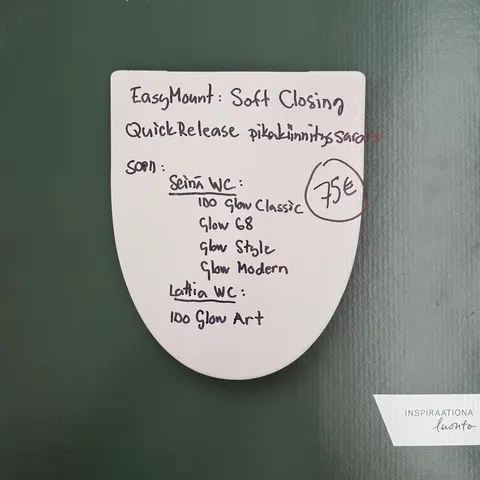 EasyMount: Soft Closing
QuickRelease pikakiinnityssarana
Sopii:
Seinä WC:
75€
100 Glow Classic
Glow 68
Glow Style
Glow Modern
Lattia WC:
100 Glow Art
INSPIRAATIONA
luonto